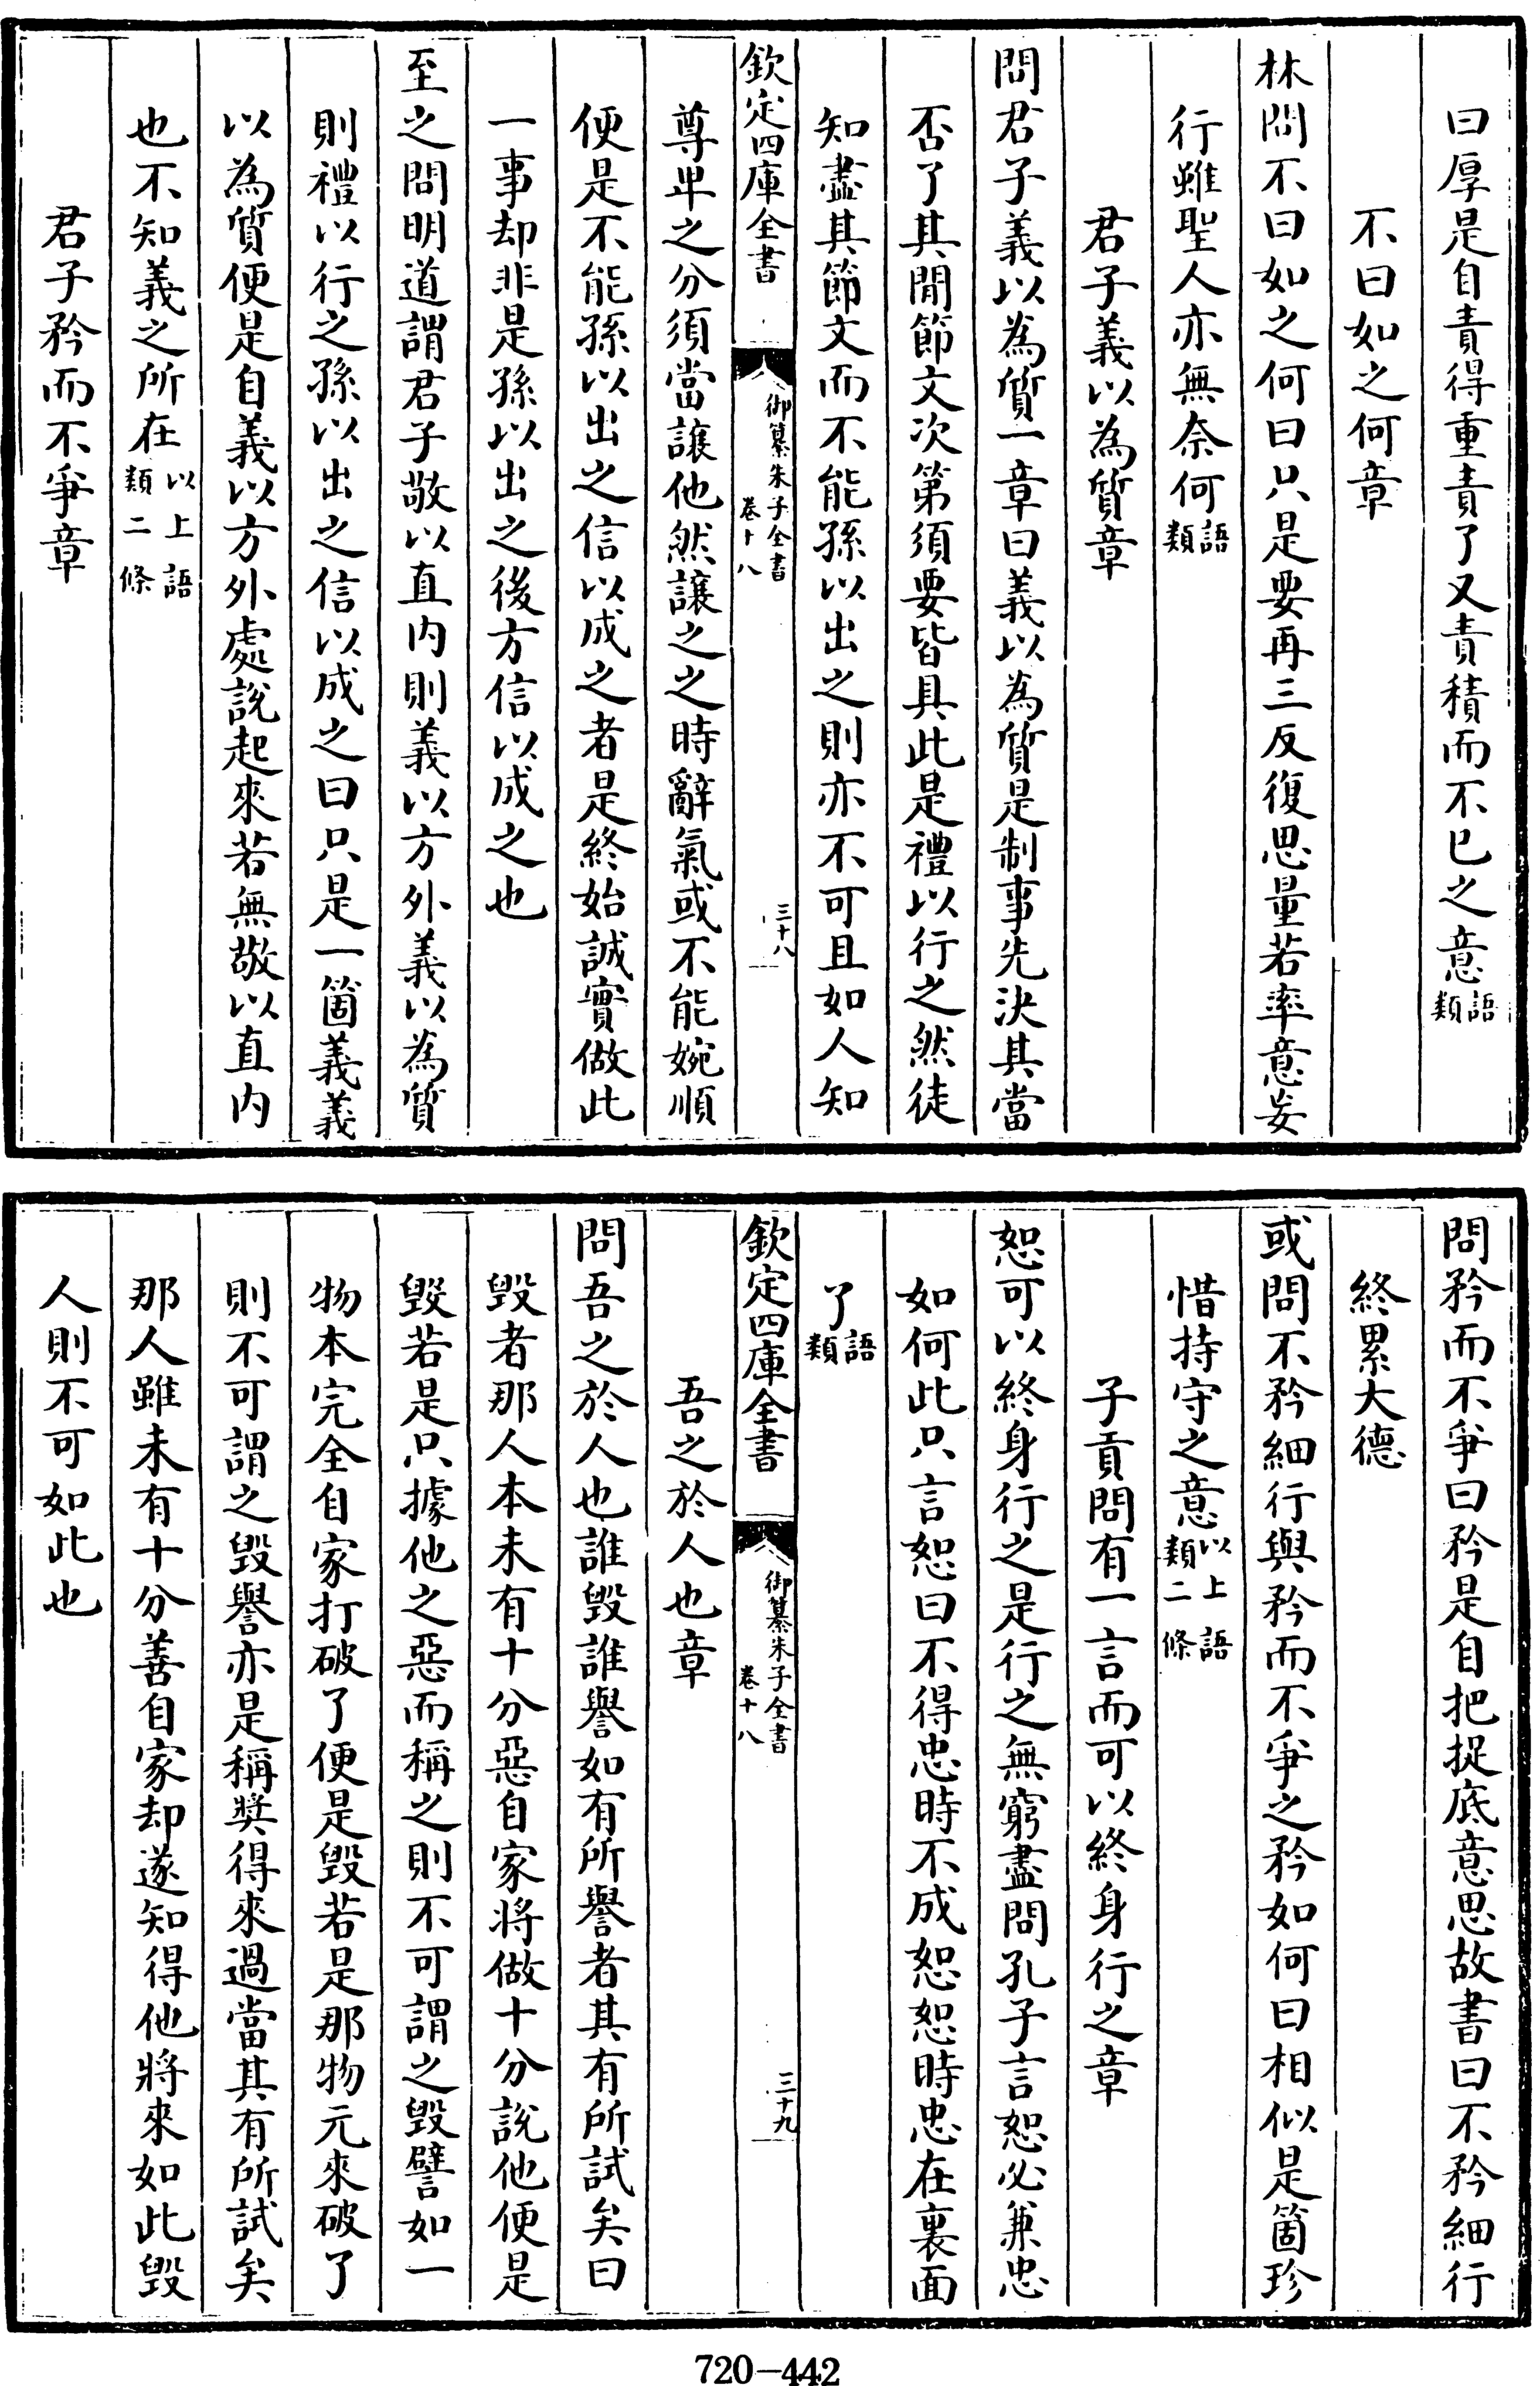 曰厚是自責得重責了又責積而不已之意語類
不曰如之何章
林問不曰如之何曰只是要再三反復思量若率意妄
行雖聖人亦無奈何語類
君子義以為質章
問君子義以為質一章曰義以為質是制事先決其當
否了其間節文次第須要皆具此是禮以行之然徒
知盡其節文而不能孫以出之則亦不可且如人知
欽定四庫全書
御纂朱子全書
卷十八
三十八
尊卑之分須當讓他然讓之之時辭氣或不能婉順
便是不能孫以出之信以成之者是終始誠實做此
一事却非是孫以出之後方信以成之也
至之問明道謂君子敬以直内則義以方外義以為質
則禮以行之孫以出之信以成之曰只是一箇義義
以為質便是自義以方外處說起來若無敬以直内
也不知義之所在以上語類二條
君子矜而不爭章
問矜而不爭曰矜是自把捉底意思故書曰不矜細行
終累大德
或問不矜細行與矜而不爭之矜如何曰相似是箇珍
惜持守之意以上語類二條
子貢問有一言而可以終身行之章
恕可以終身行之是行之無窮盡問孔子言恕必兼忠
如何此只言恕曰不得忠時不成恕恕時忠在裏面
了語類
欽定四庫全書
御纂朱子全書
卷十八
三十九
吾之於人也章
問吾之於人也誰毀誰譽如有所譽者其有所試矣曰
毀者那人本未有十分惡自家將做十分說他便是
毀若是只據他之惡而稱之則不可謂之毀譬如一
物本完全自家打破了便是毀若是那物元來破了
則不可謂之毀譽亦是稱奬得來過當其有所試矣
那人雖未有十分善自家却遂知得他將來如此毀
人則不可如此也
720-442